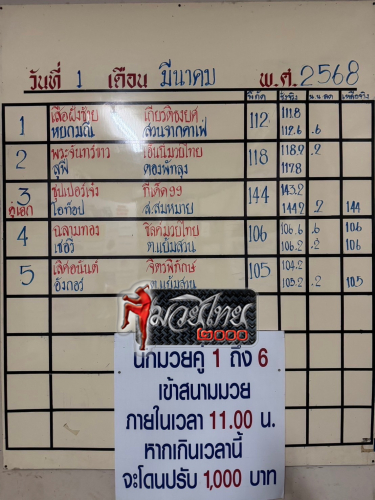 วันที่ 1 เดือน มีนาคม พ.ศ. 2568
พิกัด ชั่งจริง น.น.ลด เหลือจริง
1 เสือผงซ้าย เกียรติธงยศ 112 111.8
หยกมณี สวนจากคาเฟ่ 112.6 .6
2 พระจันทร์ขาว เอ็นนี่มวยไทย 118 118.2 .2
สุฟี ดองพัทลุง 117.8
3 ซุปเปอร์เจ๋ง ทีเด็ด99 144 143.2
คู่เอก โอท็อป ส.สมหมาย 144.2 .2 144
4 ฉลามทอง ชิลล์มวยไทย 106 106.6 .6 106
เชอรี่ ต.แย้มสวน 106.2 .2 106
5 เลิศอนันต์ จิตรพิทักษ์ 105 104.2
อังกอร์ ต.แย้มสวน 105.2 .2 105
มวยไทย
2000
นักมวยคู่ 1 ถึง 6
เข้าสนามมวย
ภายในเวลา 11.00 น.
หากเกินเวลานี้
จะโดนปรับ 1,000 บาท